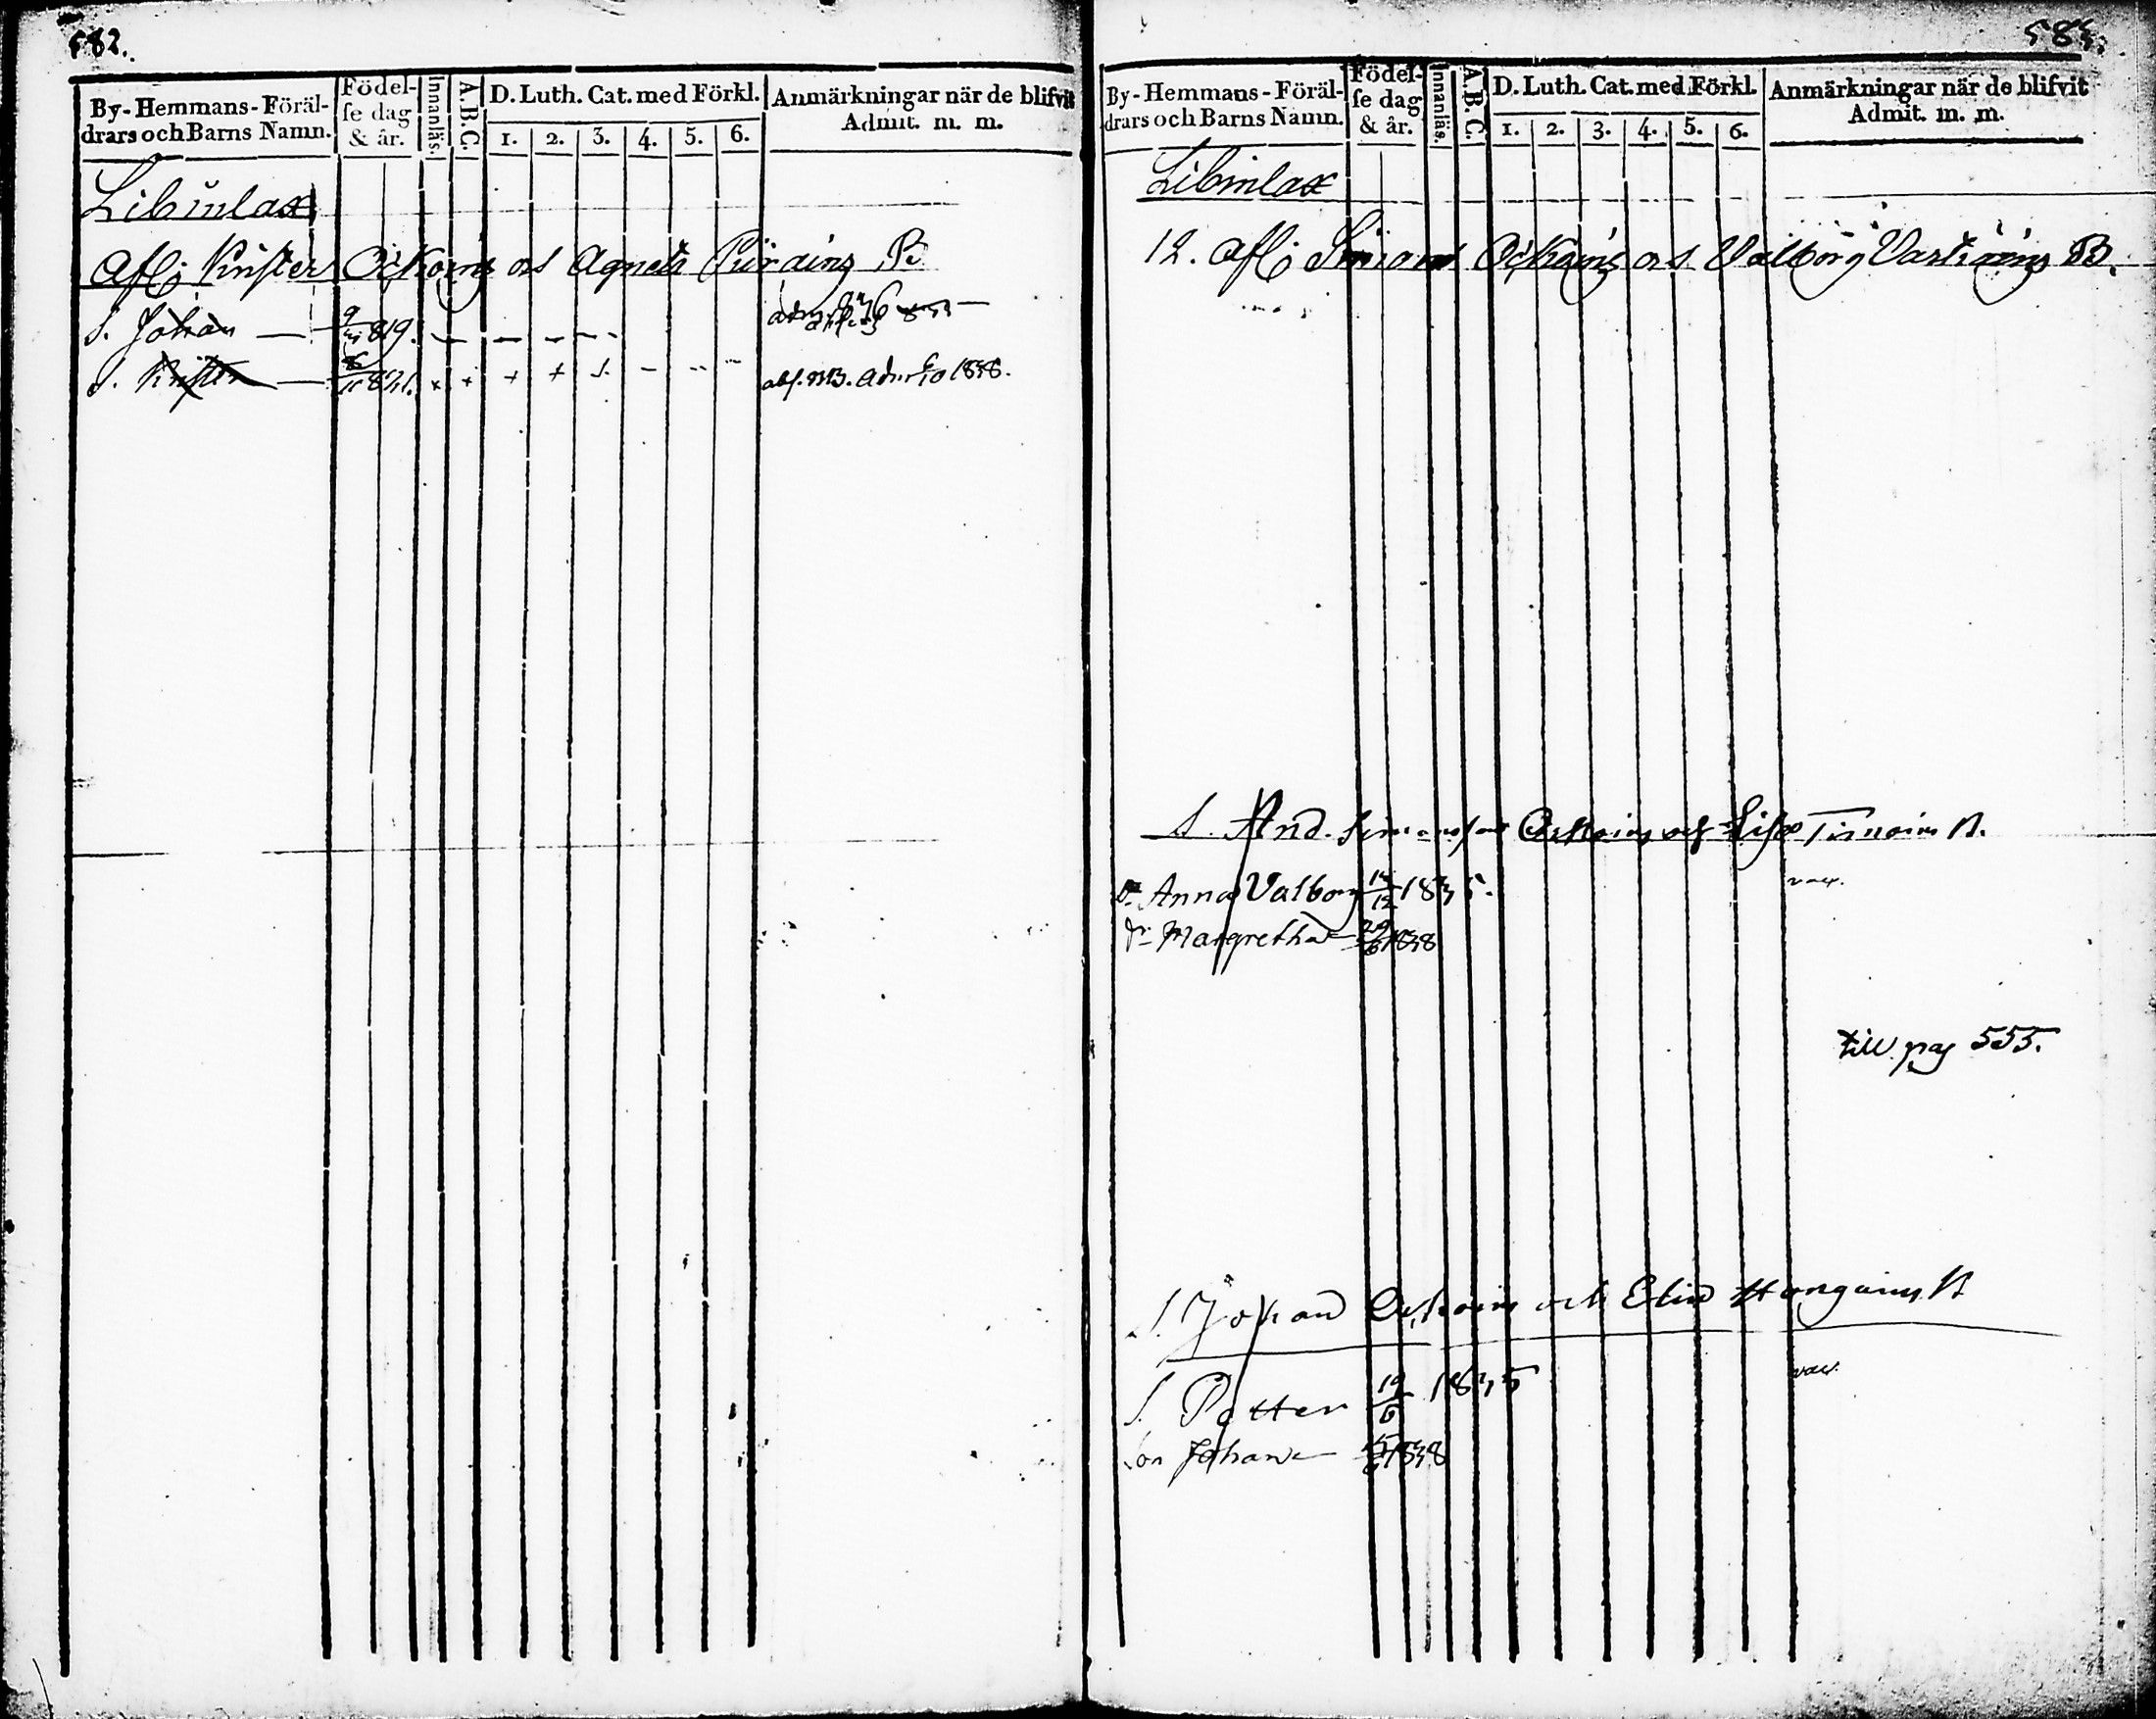 582.
By-Hemmans-Föräl-
drars och Barns Namn.
Födel-
se dag
& år.
Innanläs.
A.B.C.
D. Luth. Cat. med Förkl.
1. 2. 3. 4. 5. 6.
Anmärkningar när de blifvit
Admit. m. m.
Libinlax
Afl: Krister Ockoing och Agneta B:
S. Johan 819.
S. Krister 821. + + + +
abs. Adm 1838.
583.
By-Hemmans-Föräl-
drars och Barns Namn.
Födel-
se dag
& år.
Innanläs.
A.B.C.
D. Luth. Cat. med Förkl.
1. 2. 3. 4. 5. 6.
Anmärkningar när de blifvit
Admit. m. m.
Libinlax
12. Afl: Simon Ockoing och Valborg B.
S. And. Simonson Ockoing och Lisa B.
Dr Anna Valborg 1835. vac.
Dr Margretha 29/6 1838
till pag 555.
S. Johan Ockoing och Elin B
S. Petter 19/6 1835 vac.
son Johan 1838